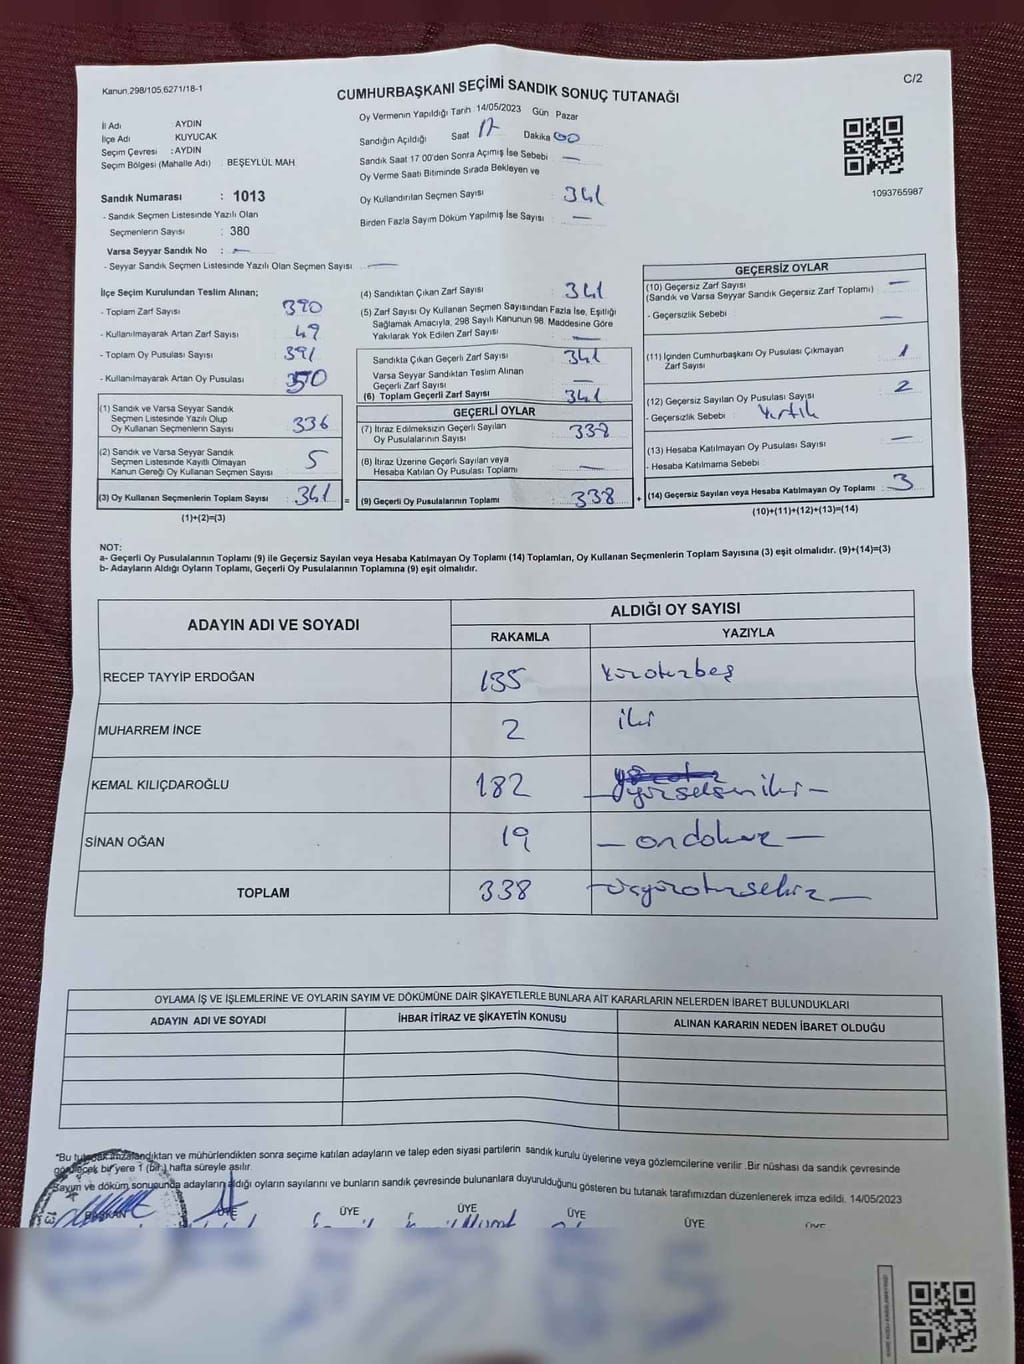 Kanun.298/105,6271/18-1
C/2
CUMHURBAŞKANI SEÇİMİ SANDIK SONUÇ TUTANAĞI
İl Adı : AYDIN
İlçe Adı KUYUCAK
Seçim Çevresi : AYDIN
Seçim Bölgesi (Mahalle Adı) : BEŞEYLÜL MAH
Sandık Numarası : 1013
- Sandık Seçmen Listesinde Yazılı Olan
Seçmenlerin Sayısı : 380
Varsa Seyyar Sandık No : —
- Seyyar Sandık Seçmen Listesinde Yazılı Olan Seçmen Sayısı : —
Oy Vermenin Yapıldığı Tarih : 14/05/2023 Gün Pazar
Sandığın Açıldığı Saat 17 Dakika 00
Sandık Saat 17 00'den Sonra Açımış İse Sebebi —
Oy Verme Saati Bitiminde Sırada Bekleyen ve
Oy Kullandırılan Seçmen Sayısı : 341
Birden Fazla Sayım Döküm Yapılmış İse Sayısı : —
1093765987
İlçe Seçim Kurulundan Teslim Alınan;
- Toplam Zarf Sayısı : 390
- Kullanılmayarak Artan Zarf Sayısı : 49
- Toplam Oy Pusulası Sayısı : 391
- Kullanılmayarak Artan Oy Pusulası : 50
(1) Sandık ve Varsa Seyyar Sandık
Seçmen Listesinde Yazılı Olup
Oy Kullanan Seçmenlerin Sayısı : 336
(2) Sandık ve Varsa Seyyar Sandık
Seçmen Listesinde Kayıtlı Olmayan
Kanun Gereği Oy Kullanan Seçmen Sayısı : 5
(3) Oy Kullanan Seçmenlerin Toplam Sayısı : 341 =
(1)+(2)=(3)
(4) Sandıktan Çıkan Zarf Sayısı : 341
(5) Zarf Sayısı Oy Kullanan Seçmen Sayısından Fazla İse, Eşitliği
Sağlamak Amacıyla, 298 Sayılı Kanunun 98. Maddesine Göre
Yakılarak Yok Edilen Zarf Sayısı : —
Sandıkta Çıkan Geçerli Zarf Sayısı : 341
Varsa Seyyar Sandıktan Teslim Alınan
Geçerli Zarf Sayısı : —
(6) Toplam Geçerli Zarf Sayısı : 341
GEÇERLİ OYLAR
(7) İtiraz Edilmeksizin Geçerli Sayılan
Oy Pusulalarının Sayısı : 338
(8) İtiraz Üzerine Geçerli Sayılan veya
Hesaba Katılan Oy Pusulası Toplamı : —
(9) Geçerli Oy Pusulalarının Toplamı : 338 +
GEÇERSİZ OYLAR
(10) Geçersiz Zarf Sayısı : —
(Sandık ve Varsa Seyyar Sandık Geçersiz Zarf Toplamı)
- Geçersizlik Sebebi : —
(11) İçinden Cumhurbaşkanı Oy Pusulası Çıkmayan
Zarf Sayısı : 1
(12) Geçersiz Sayılan Oy Pusulası Sayısı : 2
- Geçersizlik Sebebi : Yırtık
(13) Hesaba Katılmayan Oy Pusulası Sayısı : —
- Hesaba Katılmama Sebebi
(14) Geçersiz Sayılan veya Hesaba Katılmayan Oy Toplamı : 3
(10)+(11)+(12)+(13)=(14)
NOT:
a- Geçerli Oy Pusulalarının Toplamı (9) ile Geçersiz Sayılan veya Hesaba Katılmayan Oy Toplamı (14) Toplamları, Oy Kullanan Seçmenlerin Toplam Sayısına (3) eşit olmalıdır. (9)+(14)=(3)
b- Adayların Aldığı Oyların Toplamı, Geçerli Oy Pusulalarının Toplamına (9) eşit olmalıdır.
ADAYIN ADI VE SOYADI ALDIĞI OY SAYISI
RAKAMLA YAZIYLA
RECEP TAYYİP ERDOĞAN 135 Yüzotuzbeş
MUHARREM İNCE 2 iki
KEMAL KILIÇDAROĞLU 182 — yüzseksen iki —
SİNAN OĞAN 19 — ondokuz —
TOPLAM 338 — üçyüzotuzsekiz —
OYLAMA İŞ VE İŞLEMLERİNE VE OYLARIN SAYIM VE DÖKÜMÜNE DAİR ŞİKAYETLERLE BUNLARA AİT KARARLARIN NELERDEN İBARET BULUNDUKLARI
ADAYIN ADI VE SOYADI İHBAR İTİRAZ VE ŞİKAYETİN KONUSU ALINAN KARARIN NEDEN İBARET OLDUĞU
*Bu tutanak imzalandıktan ve mühürlendikten sonra seçime katılan adayların ve talep eden siyasi partilerin sandık kurulu üyelerine veya gözlemcilerine verilir .Bir nüshası da sandık çevresinde
görülecek bir yere 1 (bir) hafta süreyle asılır.
Sayım ve döküm sonucunda adayların aldığı oyların sayılarını ve bunların sandık çevresinde bulunanlara duyurulduğunu gösteren bu tutanak tarafımızdan düzenlenerek imza edildi. 14/05/2023
BAŞKAN ÜYE ÜYE ÜYE ÜYE ÜYE ÜYE